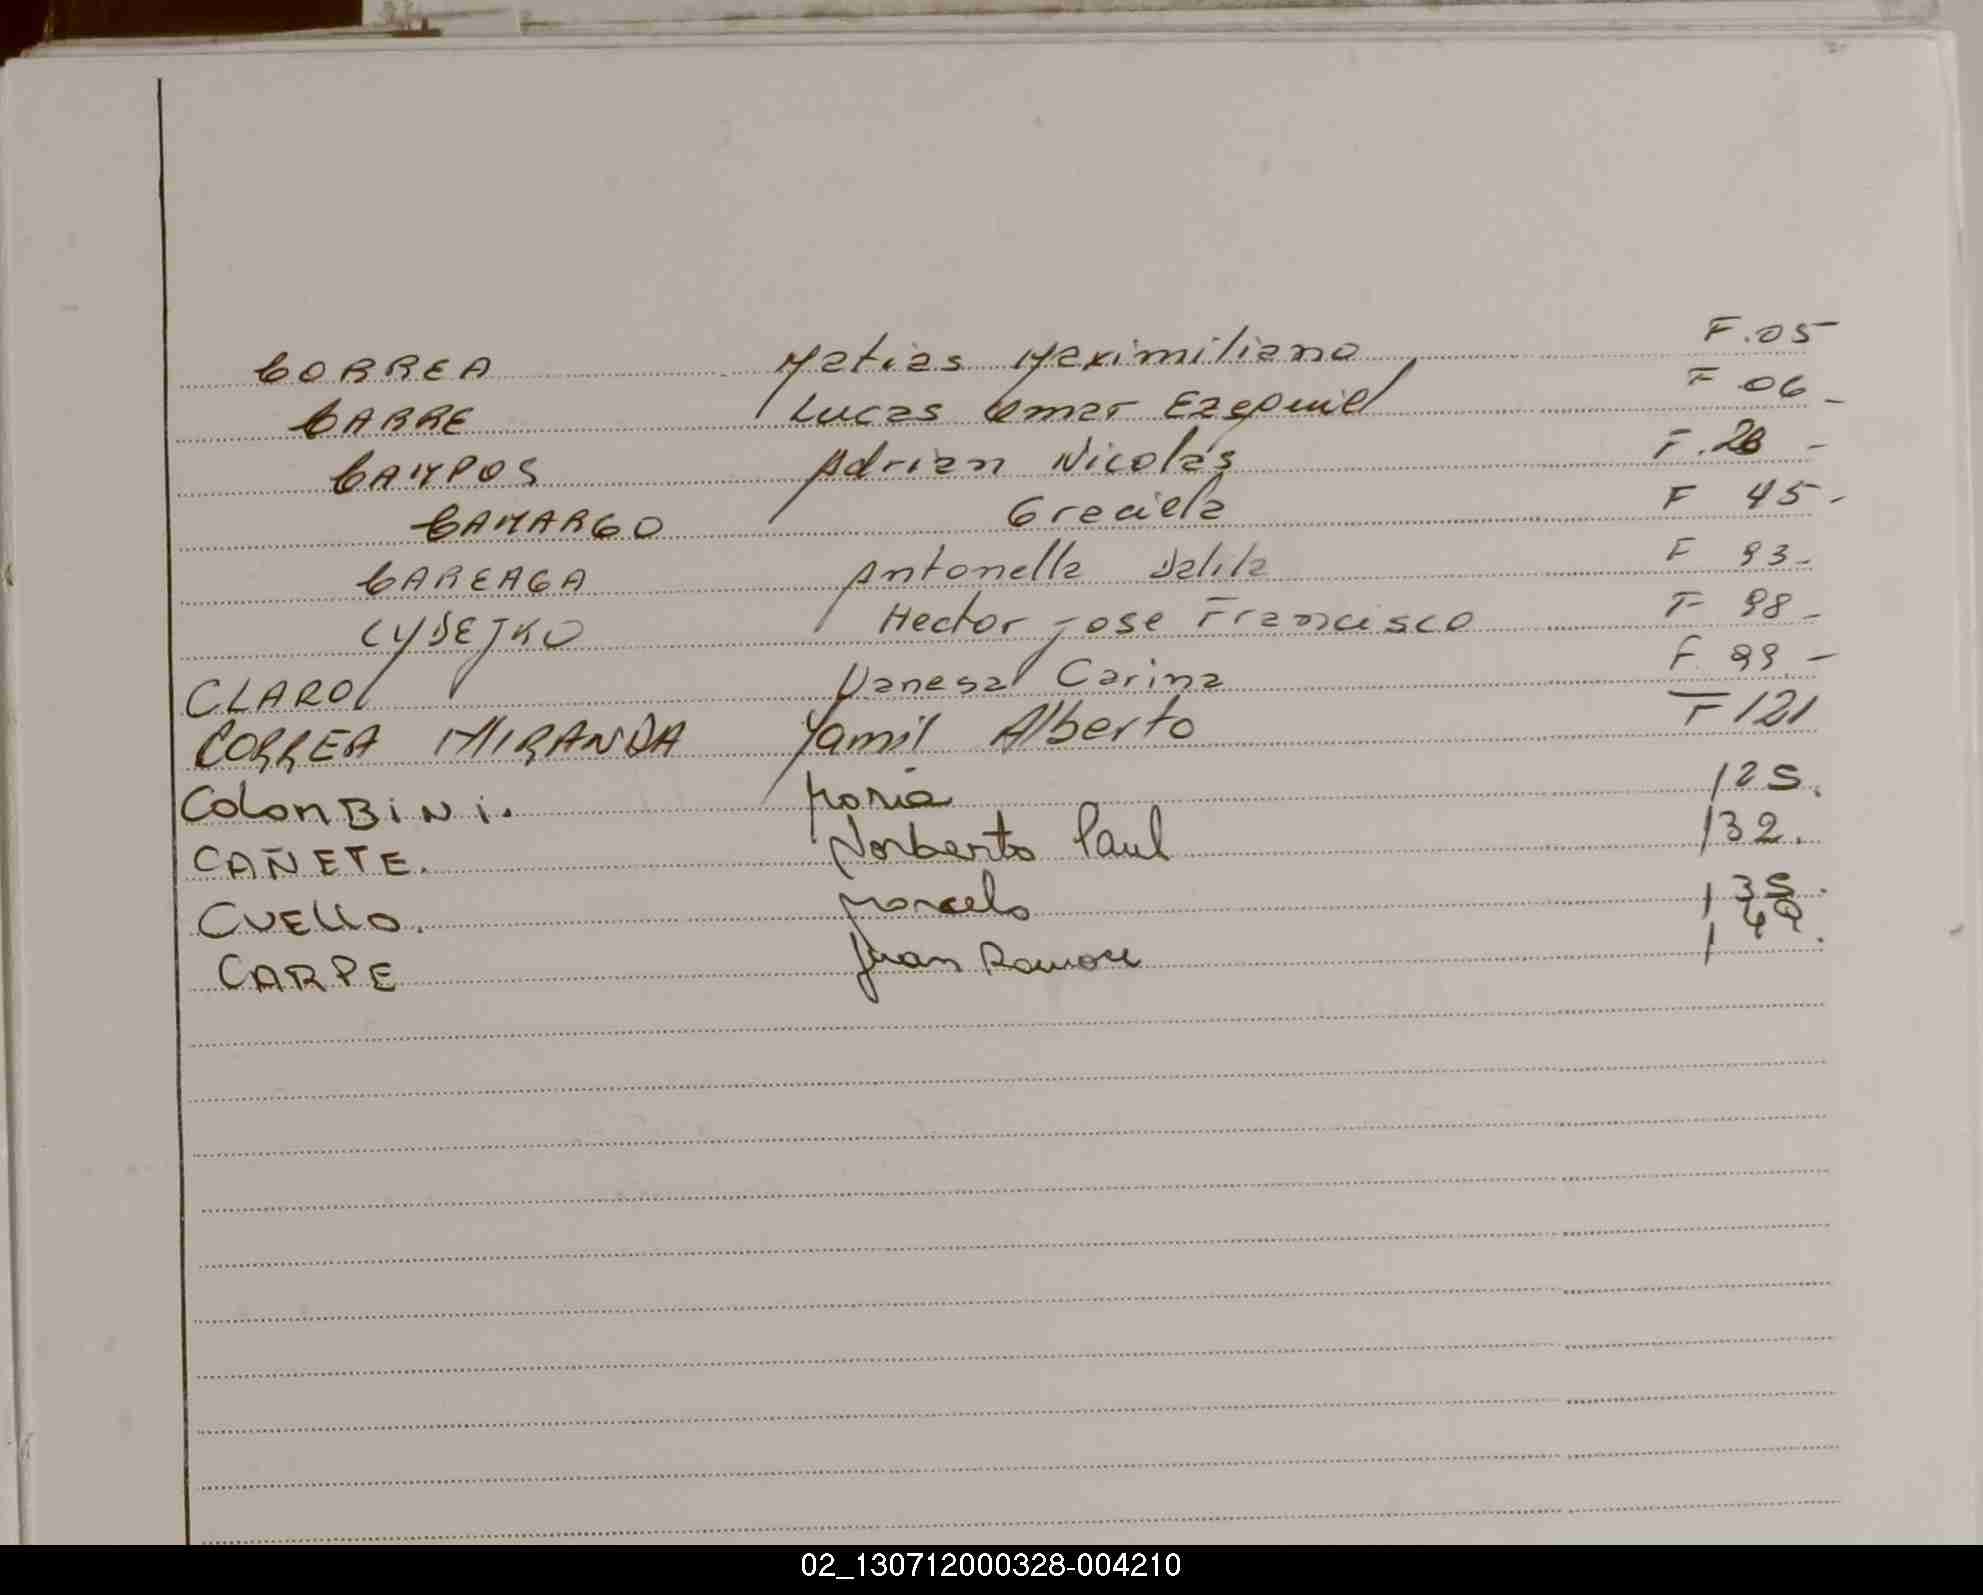 CORREA Matias Maximiliano F.05
CARRE Lucas Omar Ezequiel F 06 -
CAMPOS Adrian Nicolás F. -
CAMARGO Graciela F 45 -
CAREAGA Antonella Dalila F 93 -
CYDEJKO Hector Jose Francisco F 98 -
CLARO Vanesa Carina F. 99 -
CORREA MIRANDA Yamil Alberto F 121
COLOMBINI. Maria 125.
CAÑETE. Norberto Paul 132.
CUELLO. Marcelo 135.
CARPE Juan Ramon
02_130712000328-004210